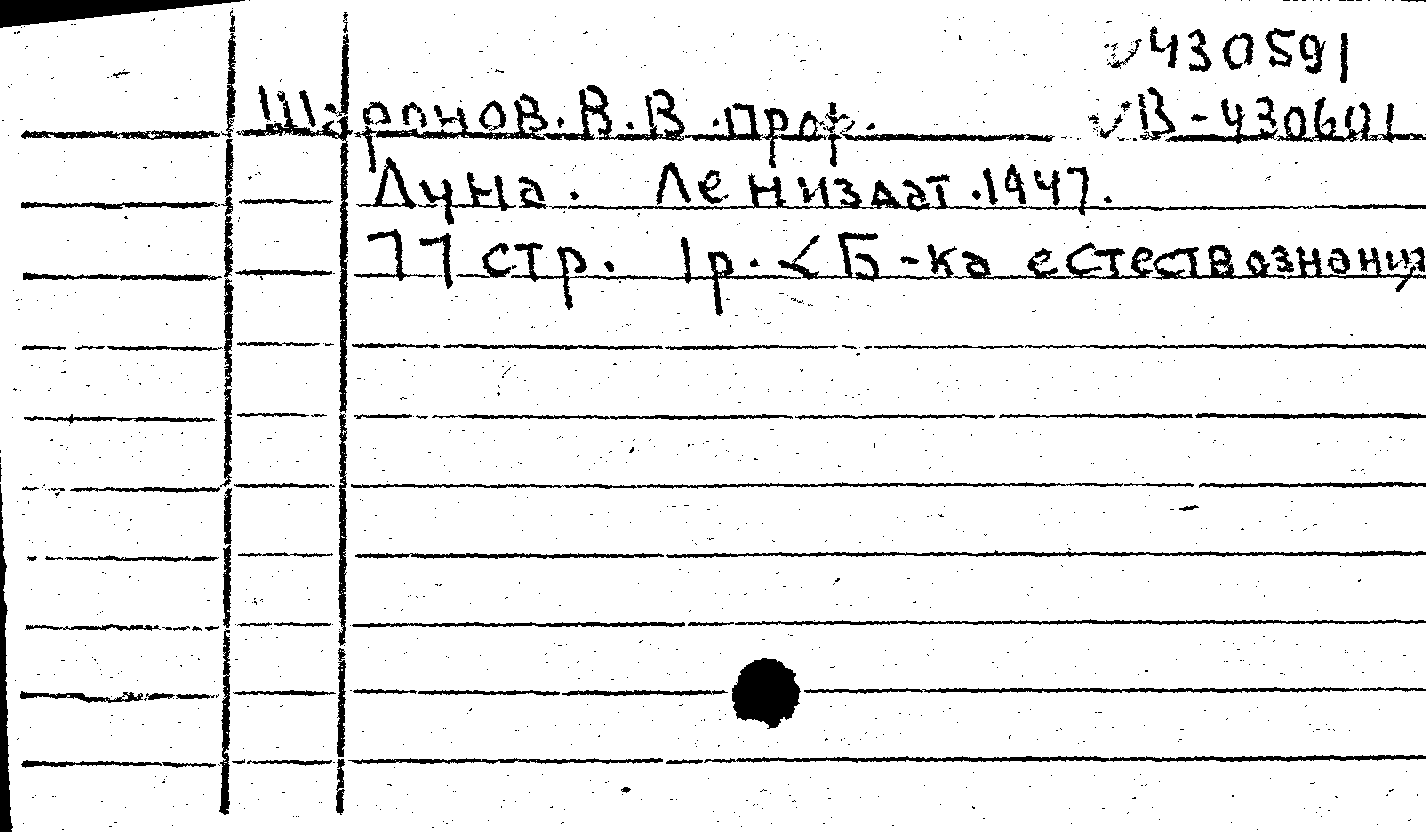 430591
Шаронов. В. В. проф. В-430601
Луна. Лениздат. 1947.
77 стр. 1р. < Б-ка естествознания